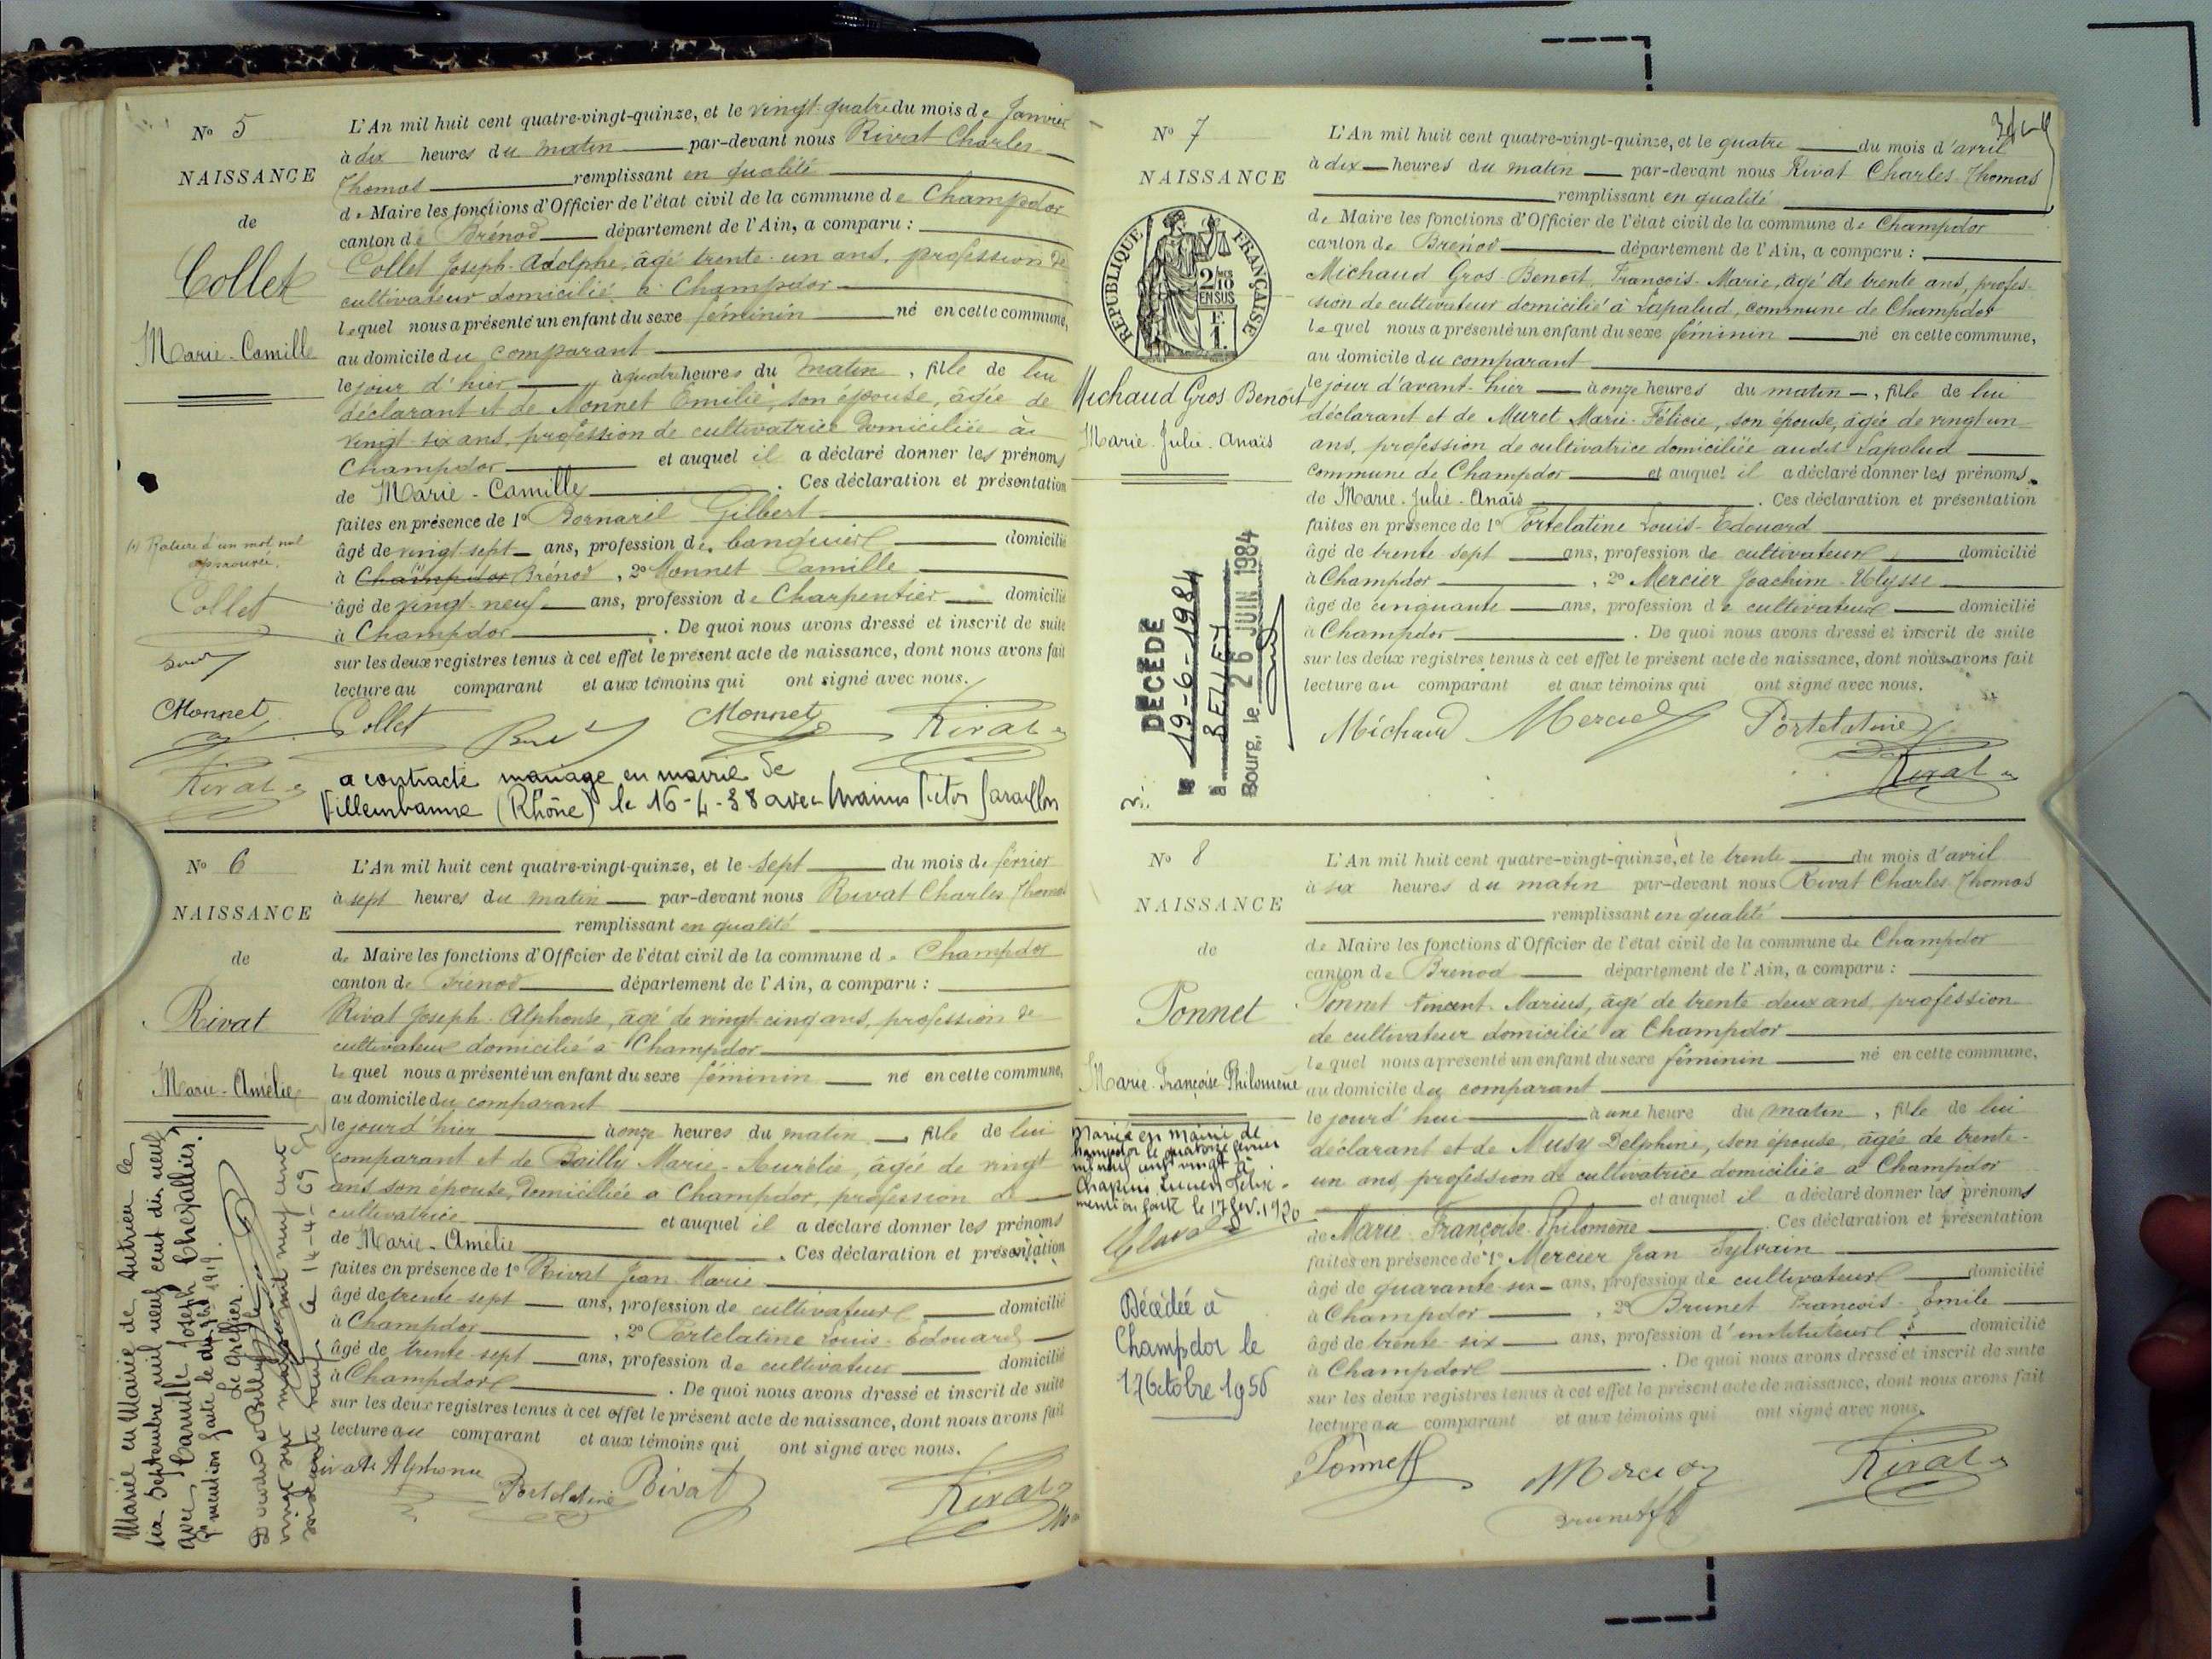 N° 5
NAISSANCE
de
Collet
Marie-Camille
L'An mil huit cent quatre-vingt-quinze, et le vingt-quatre du mois de Janvier
à dix heures du matin par-devant nous Rivat Charles
Thomas remplissant en qualité
de Maire les fonctions d'Officier de l'état civil de la commune de Champdor
canton de Brénod département de l'Ain, a comparu :
Collet Joseph-Adolphe, âgé trente-un ans, profession de
cultivateur domicilié à Champdor
lequel nous a présenté un enfant du sexe féminin né en cette commune,
au domicile du comparant
le jour d'hier à quatre heures du matin, fille de lui
déclarant et de Monnet Emilie, son épouse, âgée de
vingt-six ans, profession de cultivatrice domiciliée à
Champdor et auquel il a déclaré donner les prénoms
de Marie-Camille. Ces déclaration et présentation
faites en présence de 1° Gilbert
âgé de vingt-sept ans, profession de banquier domicilié
à Champdor Brénod, 2° Monnet Camille
âgé de vingt-neuf ans, profession de Charpentier domicilié
à Champdor. De quoi nous avons dressé et inscrit de suite
sur les deux registres tenus à cet effet le présent acte de naissance, dont nous avons fait
lecture au comparant et aux témoins qui ont signé avec nous.
Rature d'un mot nul
approuvée.
Collet
Monnet
Rivat
Collet Monnet Rivat
a contracté mariage en mairie de
Villeurbanne (Rhône) le 16-4-38 avec Marius Victor
N° 6
NAISSANCE
de
Rivat
Marie-Amélie
L'An mil huit cent quatre-vingt-quinze, et le sept du mois de février
à sept heures du matin par-devant nous Rivat Charles Thomas
remplissant en qualité
de Maire les fonctions d'Officier de l'état civil de la commune de Champdor
canton de Brénod département de l'Ain, a comparu :
Rivat Joseph-Alphonse, âgé de vingt-cinq ans, profession de
cultivateur domicilié à Champdor
lequel nous a présenté un enfant du sexe féminin né en cette commune,
au domicile du comparant
le jour d'hier à onze heures du matin, fille de lui
comparant et de Bailly Marie-Aurélie, âgée de vingt
ans son épouse, domiciliée à Champdor, profession de
cultivatrice et auquel il a déclaré donner les prénoms
de Marie-Amélie. Ces déclaration et présentation
faites en présence de 1° Rivat Jean-Marie
âgé de trente-sept ans, profession de cultivateur domicilié
à Champdor, 2° Portelatine Louis-Edouard
âgé de trente-sept ans, profession de cultivateur domicilié
à Champdor. De quoi nous avons dressé et inscrit de suite
sur les deux registres tenus à cet effet le présent acte de naissance, dont nous avons fait
lecture au comparant et aux témoins qui ont signé avec nous.
Rivat Alphonse Portelatine Rivat Rivat
Mariée en Mairie de Lutrieu le
six Septembre mil neuf cent dix neuf
avec Camille Joseph Chevallier.
mention faite le 1919.
Le Greffier.
le 14-4-69
N° 7
NAISSANCE
RÉPUBLIQUE FRANÇAISE
2/10 EN SUS
F. 1.
Michaud Gros Benoît
Marie-Julie-Anaïs
L'An mil huit cent quatre-vingt-quinze, et le quatre du mois d'avril
à dix heures du matin par-devant nous Rivat Charles-Thomas
remplissant en qualité
de Maire les fonctions d'Officier de l'état civil de la commune de Champdor
canton de Brénod département de l'Ain, a comparu :
Michaud Gros-Benoît, François-Marie, âgé de trente ans, profes-
sion de cultivateur domicilié à Lapalud, commune de Champdor
lequel nous a présenté un enfant du sexe féminin né en cette commune,
au domicile du comparant
le jour d'avant-hier à onze heures du matin, fille de lui
déclarant et de Muret Marie-Félicie, son épouse, âgée de vingt-un
ans, profession de cultivatrice domiciliée audit Lapalud
commune de Champdor et auquel il a déclaré donner les prénoms
de Marie-Julie-Anaïs. Ces déclaration et présentation
faites en présence de 1° Portelatine Louis-Edouard
âgé de trente-sept ans, profession de cultivateur domicilié
à Champdor, 2° Mercier Joachim-Ulysse
âgé de cinquante ans, profession de cultivateur domicilié
à Champdor. De quoi nous avons dressé et inscrit de suite
sur les deux registres tenus à cet effet le présent acte de naissance, dont nous avons fait
lecture au comparant et aux témoins qui ont signé avec nous.
Michaud Mercier Portelatine
Rivat
DÉCÉDÉ
le 19-6-1984
à BELLEY
Bourg, le 26 JUIN 1984
N° 8
NAISSANCE
de
Ponnet
Marie-Françoise-Philomène
L'An mil huit cent quatre-vingt-quinze, et le trente du mois d'avril
à six heures du matin par-devant nous Rivat Charles-Thomas
remplissant en qualité
de Maire les fonctions d'Officier de l'état civil de la commune de Champdor
canton de Brénod département de l'Ain, a comparu :
Ponnet Vincent-Marius, âgé de trente-deux ans, profession
de cultivateur domicilié à Champdor
lequel nous a présenté un enfant du sexe féminin né en cette commune,
au domicile du comparant
le jourd'hui à une heure du matin, fille de lui
déclarant et de Musy Delphine, son épouse, âgée de trente-
un ans, profession de cultivatrice domiciliée à Champdor
et auquel il a déclaré donner les prénoms
de Marie-Françoise-Philomène. Ces déclaration et présentation
faites en présence de 1° Mercier Jean Sylvain
âgé de quarante-six ans, profession de cultivateur domicilié
à Champdor, 2° Brunet François-Emile
âgé de trente-six ans, profession d'instituteur domicilié
à Champdor. De quoi nous avons dressé et inscrit de suite
sur les deux registres tenus à cet effet le présent acte de naissance, dont nous avons fait
lecture au comparant et aux témoins qui ont signé avec nous.
Ponnet Mercier Rivat
Brunet
Mariée en mairie de
Champdor le quatorze février
mil neuf cent vingt à
Chapuis Lucien Félix
mention faite le 17 fev. 1920
Décédée à
Champdor le
17 Octobre 1956